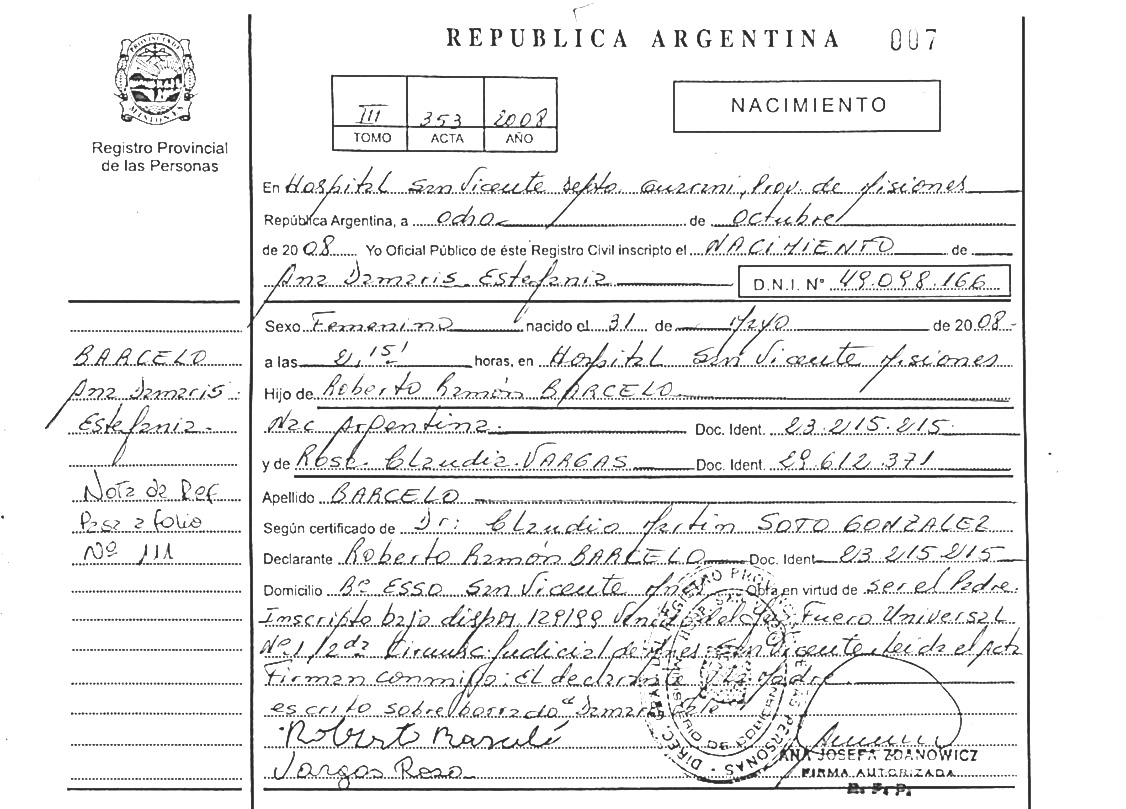 REPUBLICA ARGENTINA 007
PROVINCIA DE
MISIONES
Registro Provincial
de las Personas
III 353 2008
TOMO ACTA AÑO
NACIMIENTO
En Hospital San Vicente Depto. Guarani, Prov. de Misiones
República Argentina, a ocho de Octubre
de 2008 Yo Oficial Público de éste Registro Civil inscripto el NACIMIENTO de
Ana Damaris Estefania D.N.I. N° 49.098.166
Sexo Femenino nacido el 31 de Mayo de 2008-
a las 21,15' horas, en Hospital San Vicente Misiones
Hijo de Roberto Ramón BARCELO
Nac Argentina. Doc. Ident. 23.215.215
y de Rosa Claudia VARGAS Doc. Ident. 29.612.371
Apellido BARCELO
Según certificado de Dr: Claudio Martin SOTO GONZALEZ
Declarante Roberto Ramón BARCELO Doc. Ident 23.215.215
Domicilio Bº ESSO San Vicente Obra en virtud de ser el Padre.
Inscripto bajo dispos 129/99 Fuero Universal
Nº 1/2da Circunsc. Judicial de Mnes. San Vicente. Leida el Acta
Firman conmigo: El declarante y la Madre
escrito sobre borrado "Damaris"
Vargas Rosa
BARCELO
Ana Damaris
Estefania.
Nota de Ref
Pasa a folio
Nº 111
ANA JOSEFA ZDANOWICZ
FIRMA AUTORIZADA
R. P. P.